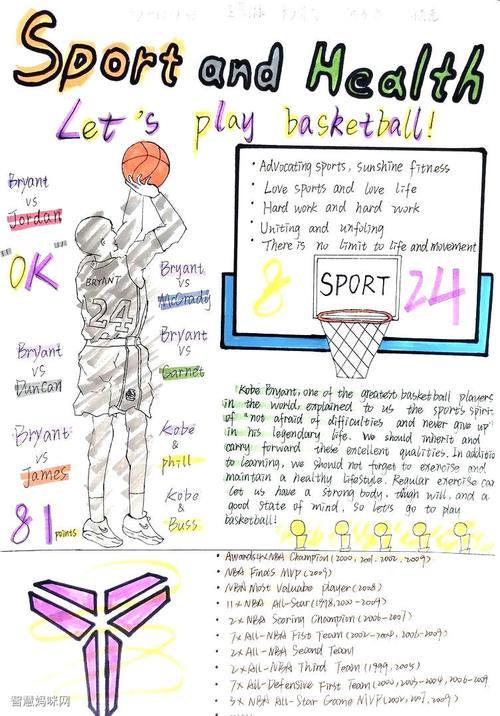 Sport and Health
Let's play basketball!
Bryant
vs
Jordan
OK
Bryant
vs
Duncan
Bryant
vs
James
81 points
BRYANT
24
Bryant
vs
McGrady
Bryant
vs
Garnet
Kobe
&
phill
Kobe
&
Buss
• Advocating sports, sunshine fitness
• Love sports and love life
• Hard work and hard work
• Uniting and unfoling
• There is no limit to life and movement
8
SPORT
24
Kobe Bryant, one of the greatest basketball players
in the world, explained to us the sports spirit
of "not afraid of difficulties and never give up"
in his legendary life. We should inherit and
carry forward these excellent qualities. In additio
to learning, we should not forget to exercise and
maintain a healthy lifestyle. Regular exercise can
let us have a strong body, though will, and a
good state of mind. So let's go to play
basketball!
• Awards 4×NBA Champion (2000, 2001, 2002, 2009)
• NBA Finals MVP (2009)
• NBA Most Valuabe player (2008)
• 11×NBA All-Star (1998, 2000-2009)
• 2×NBA Scoring Champion (2006-2007)
• 7×All-NBA Fist Team (2002-2004, 2006-2009)
• 2×All-NBA Second Team
• 2×All-NBA Third Team (1999, 2005)
• 7×All-Defensive First Team (2000, 2003-2004, 2006-2009
• 3×NBA All-Star Game MVP (2002, 2007, 2009)
智慧妈咪网